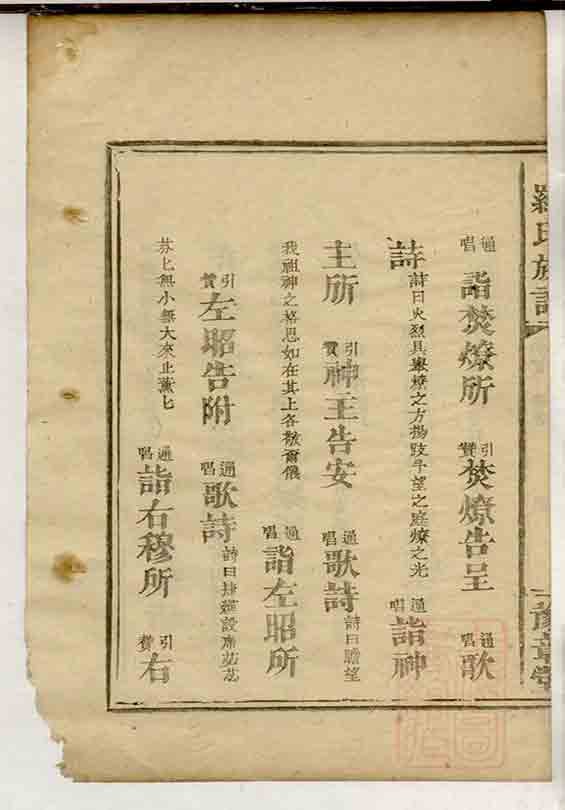 羅氏族譜
豫章堂
通唱詣焚燎所引贊焚燎告呈通唱歌
詩詩曰火烈具舉燎之方揚跂予望之庭燎之光通唱詣神
主所引贊神王告安通唱歌詩詩曰瞻望
我祖神之格思如在其上各敬爾儀通唱詣左昭所
引贊左昭告附通唱歌詩詩曰肆筵設席苾苾
芬匕無小無大來止薰匕通唱詣右穆所引贊右